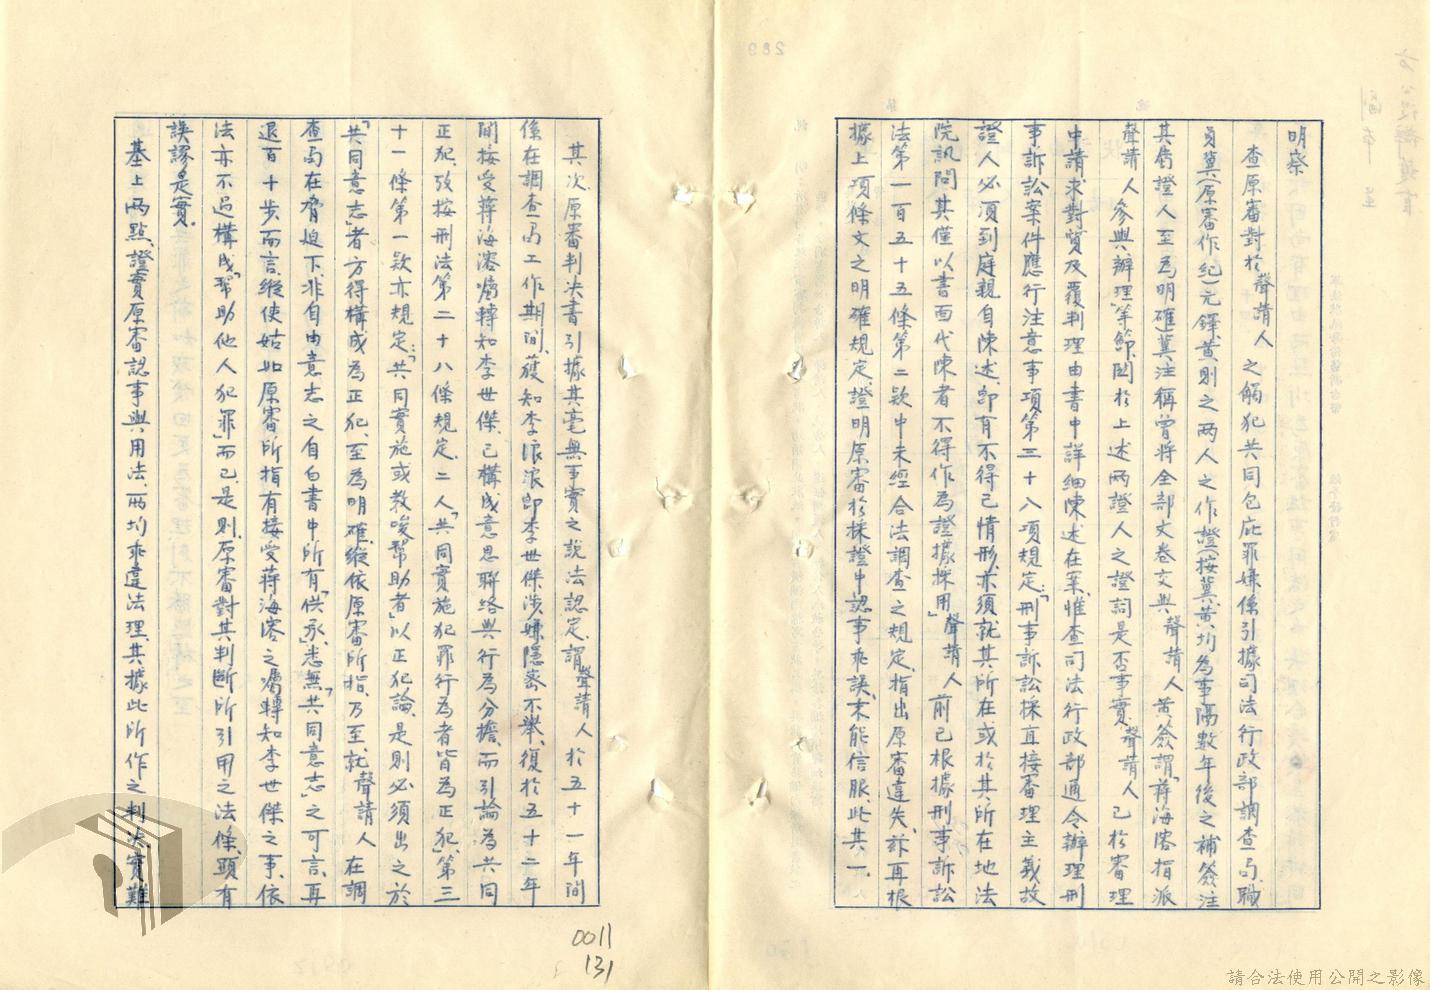 明察
查原審對於聲請人之觸犯共同包庇罪嫌係引據司法行政部調查局職
員冀(原審作紀)元鐸、黃則之兩人之作證(按冀、黃、均為事隔數年後之補簽注
其為證人至為明確)冀注稱「曾將全部文卷交與聲請人」黃簽謂「蔣海溶指派
聲請人參與辦理」等節、関於上述兩證人之證詞是否事實、聲請人已於審理
中請求對質及覆判理由書中詳細陳述在案、惟查司法行政部通令辦理刑
事訴訟案件應行注意事項第三十八項規定:「刑事訴訟採直接審理主義故
證人必須到庭親自陳述、即有不得已情形、亦須就其所在或於其所在地法
院訊問其僅以書面代陳者不得作為證據採用」聲請人前已根據刑事訴訟
法第一百五十五條第二款中未經合法調查之規定、指出原審違失、茲再根
據上項條文之明確規定、證明原審於採證中認事乖誤、未能信服、此其一。
其次、原審判決書引據其毫無事實之說法認定、謂聲請人於五十一年間
係在調查局工作期間、獲知李浪淘即李世傑涉嫌隱密不舉、復於五十二年
間接受蔣海溶囑轉知李世傑、已構成意思聯絡與行為分擔、而引論為共同
正犯、攷按刑法第二十八條規定、二人「共同實施犯罪行為者皆為正犯」第三
十一條第一款亦規定:「共同實施或教唆幫助者」以正犯論、是則必須出之於
「共同意志」者方得構成為正犯、至為明確、縱依原審所指、乃至就聲請人在調
查局在脅迫下、非自由意志之自白書中所有「供」「承」、悉無「共同意志」之可言、再
退百十步而言、縱使姑如原審所指有接受蔣海溶之囑轉知李世傑之事、依
法亦不過構成「幫助他人犯罪」而已、是則、原審對其判斷所引用之法條、顯有
誤謬是實。
基上兩點、證實原審認事與用法、兩均乖違法理、其據此所作之判決、實難
0011
131
請合法使用公開之影像